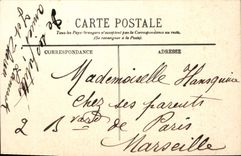 CARTE POSTALE
Tous les Pays étrangers n'acceptent pas la Correspondance au recto.
(Se renseigner à la Poste).
CORRESPONDANCE
ADRESSE
Mademoiselle Hansquine
chez ses parents
2 Bvard de Paris
Marseille